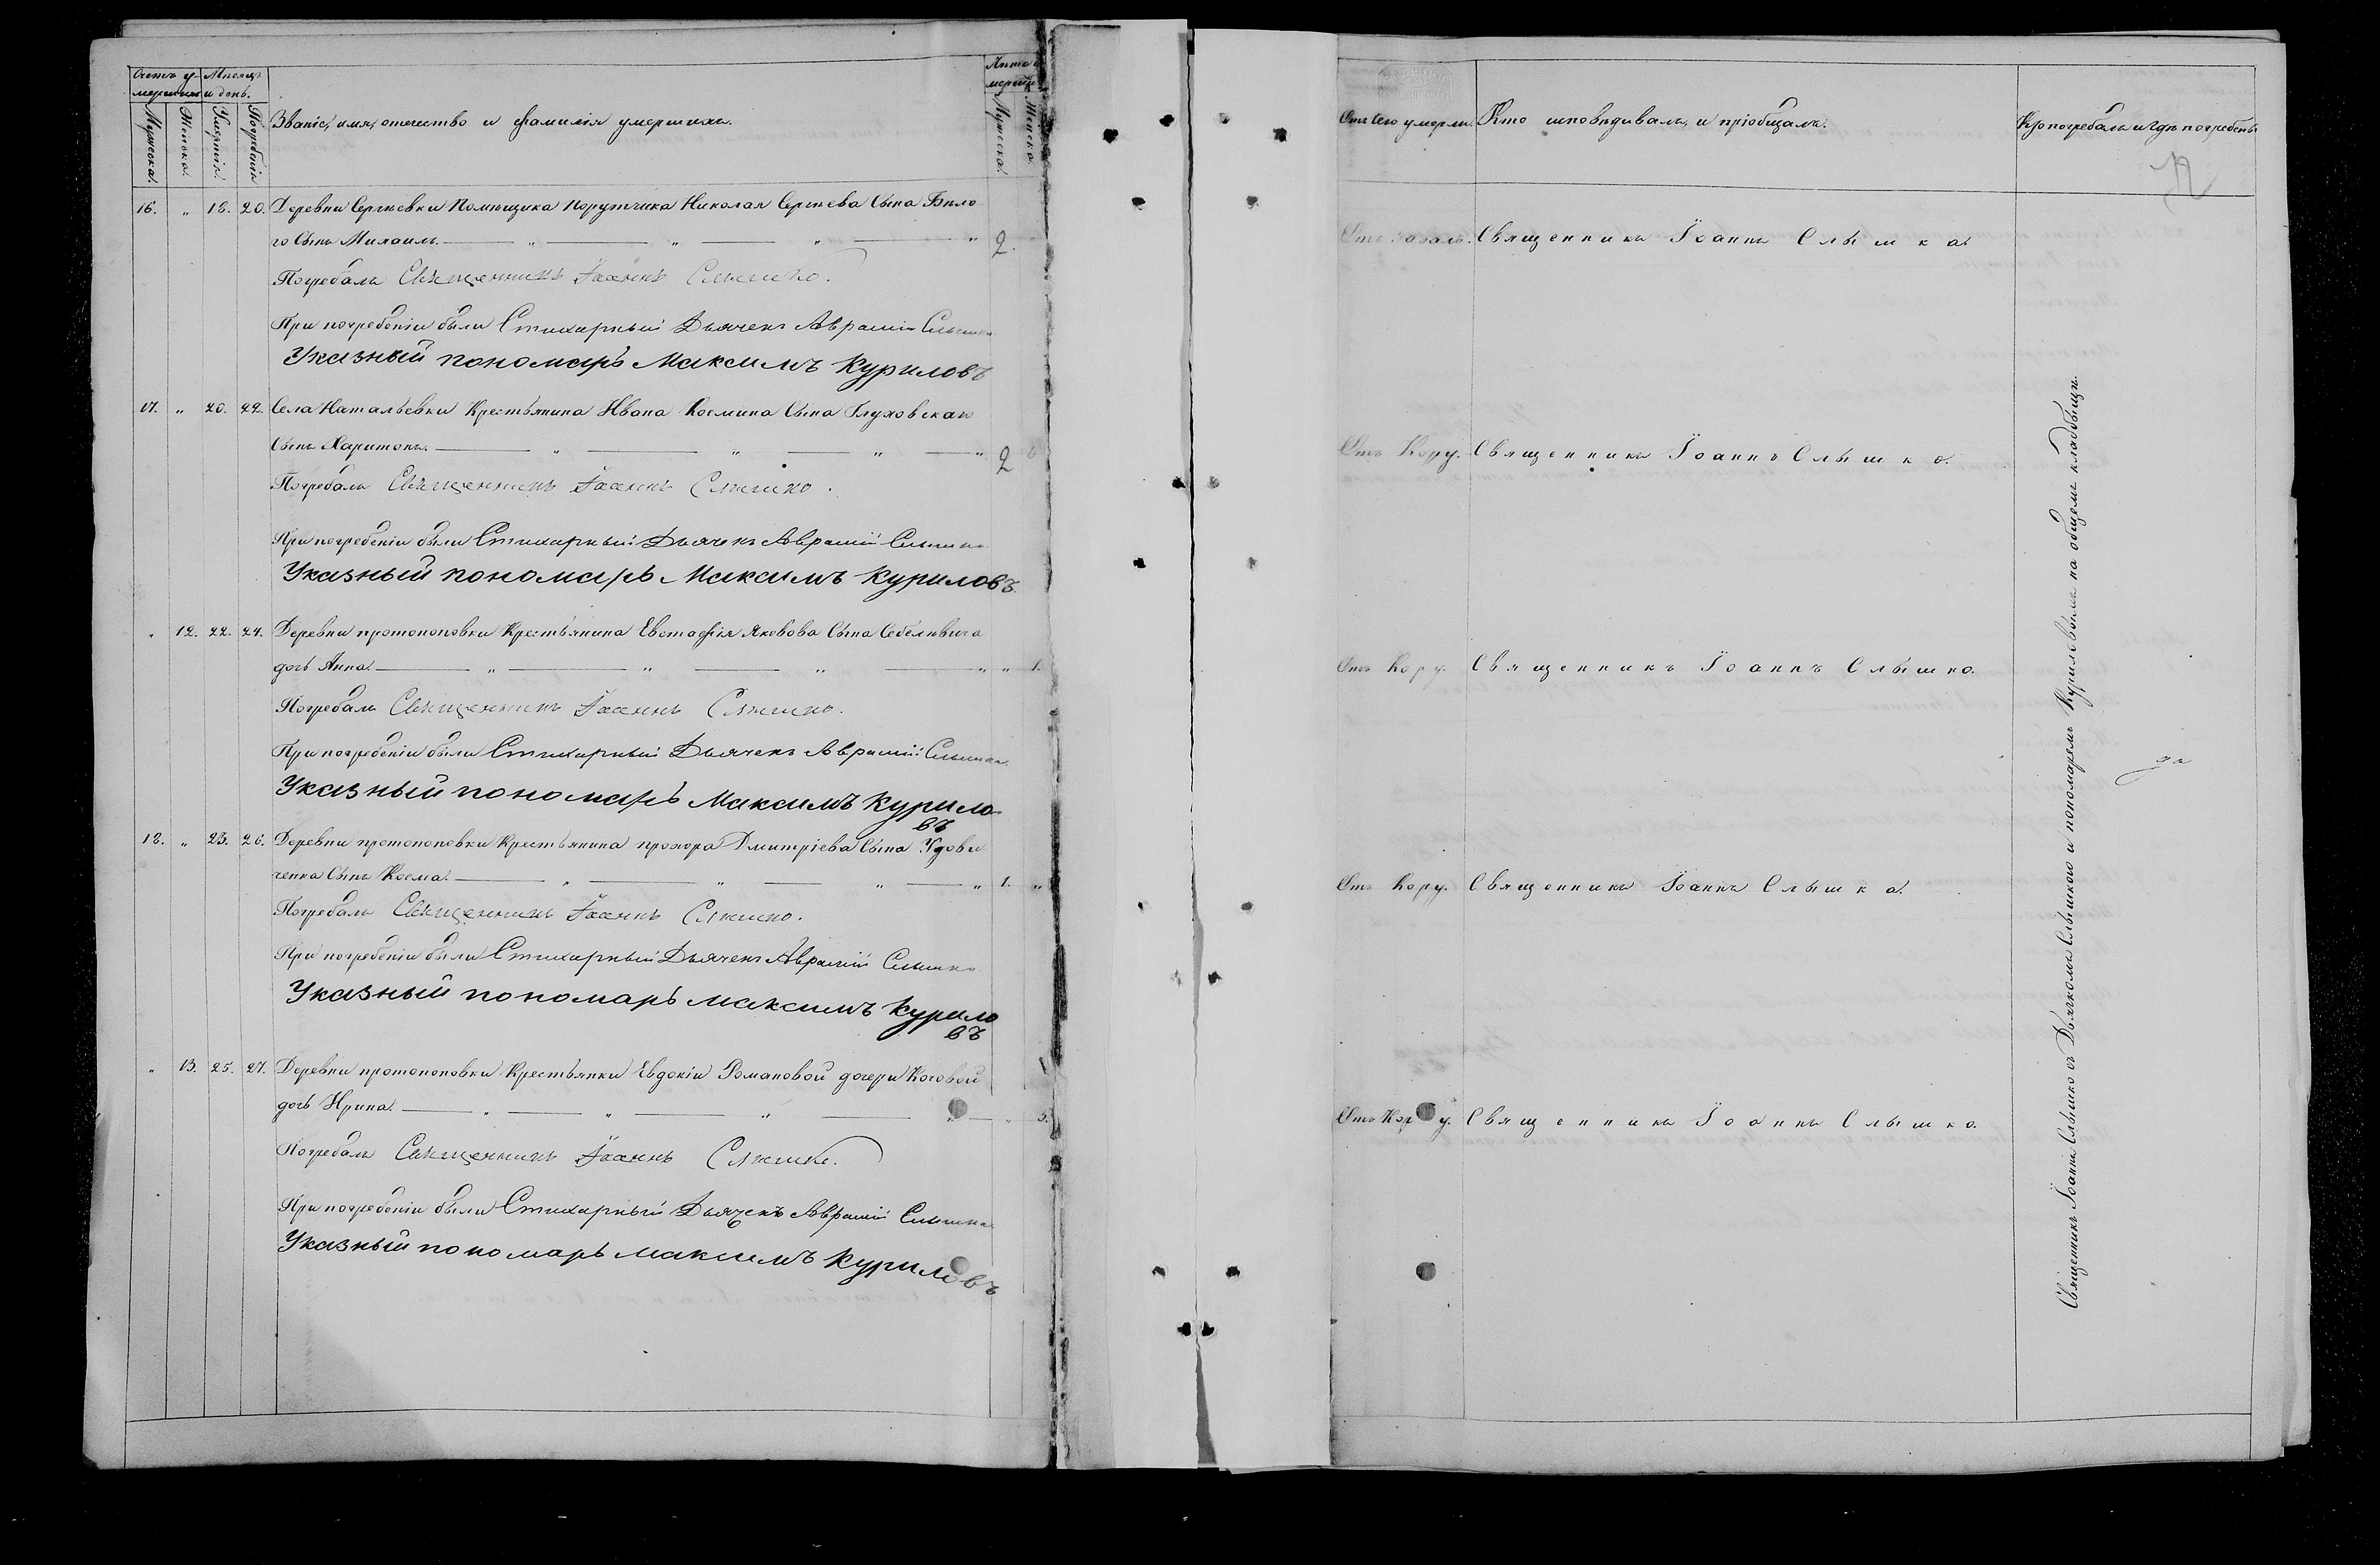 Счетъ у-
мершихъ
Мѣсяцъ
и день.
Мужеска.
Женска.
Умертія.
Погребенія
Званіе, имя, отечество и фамилія умершихъ.
Лѣта у
мерших
Мужеска.
Женска.
16. " 18. 20. Деревни Сергѣевки Помѣщика Порутчика Николая Сергѣева Сына Бѣло
го Сынъ Михаилъ. " " " " 2.
Погребалъ Священникъ Іоаннъ Слышко.
При погребеніи были Стихарный Дьячекъ Аврамій Слышко
Указный пономарь Максимъ Куриловъ
17. " 20. 22. Села Натальевки Крестьянина Ивана Косьмина Сына Глуховскаго
Сынъ Харитонъ. " " " " 2
Погребалъ Священникъ Іоаннъ Слышко.
При погребеніи были Стихарный Дьячекъ Аврамій Слышко
Указный пономарь Максимъ Куриловъ.
" 12. 22. 24. Деревни протопоповки Крестьянина Евстафія Яковова Сына
дочь Анна. " " " " " 1.
Погребалъ Священникъ Іоаннъ Слышко.
При погребеніи были Стихарный Дьячекъ Аврамій Слышко.
Указный пономарь Максимъ Курило
въ
18. " 23. 26. Деревни протопоповки Крестьянина прохора Дмитріева Сына Удови
ченка Сынъ Косма. " " " " 1. "
Погребалъ Священникъ Іоаннъ Слышко.
При погребеніи были Стихарный Дьячекъ Аврамій Слышко
Указный пономарь Максимъ Курило
въ
" 13. 25. 27. Деревни протопоповки Крестьянки Евдокіи Романовой дочери
дочь Ирина. " " " " " 5.
Погребалъ Священникъ Іоаннъ Слышко.
При погребеніи были Стихарный Дьячекъ Аврамій Слышко
Указный пономарь Максимъ Куриловъ
Отъ чего умерли.
Кто исповѣдивалъ, и пріобщалъ.
Кто погребалъ и гдѣ погребены
Священникъ Іоаннъ Слышко.
Отъ Кору. Священникъ Іоаннъ Слышко.
Отъ Кору. Священникъ Іоаннъ Слышко.
Отъ Кору. Священникъ Іоаннъ Слышко.
Отъ Кору. Священникъ Іоаннъ Слышко.
Священникъ Іоаннъ Слышко съ Дьячкомъ Слышкою и пономаремъ Куриловымъ на общемъ кладбищи.